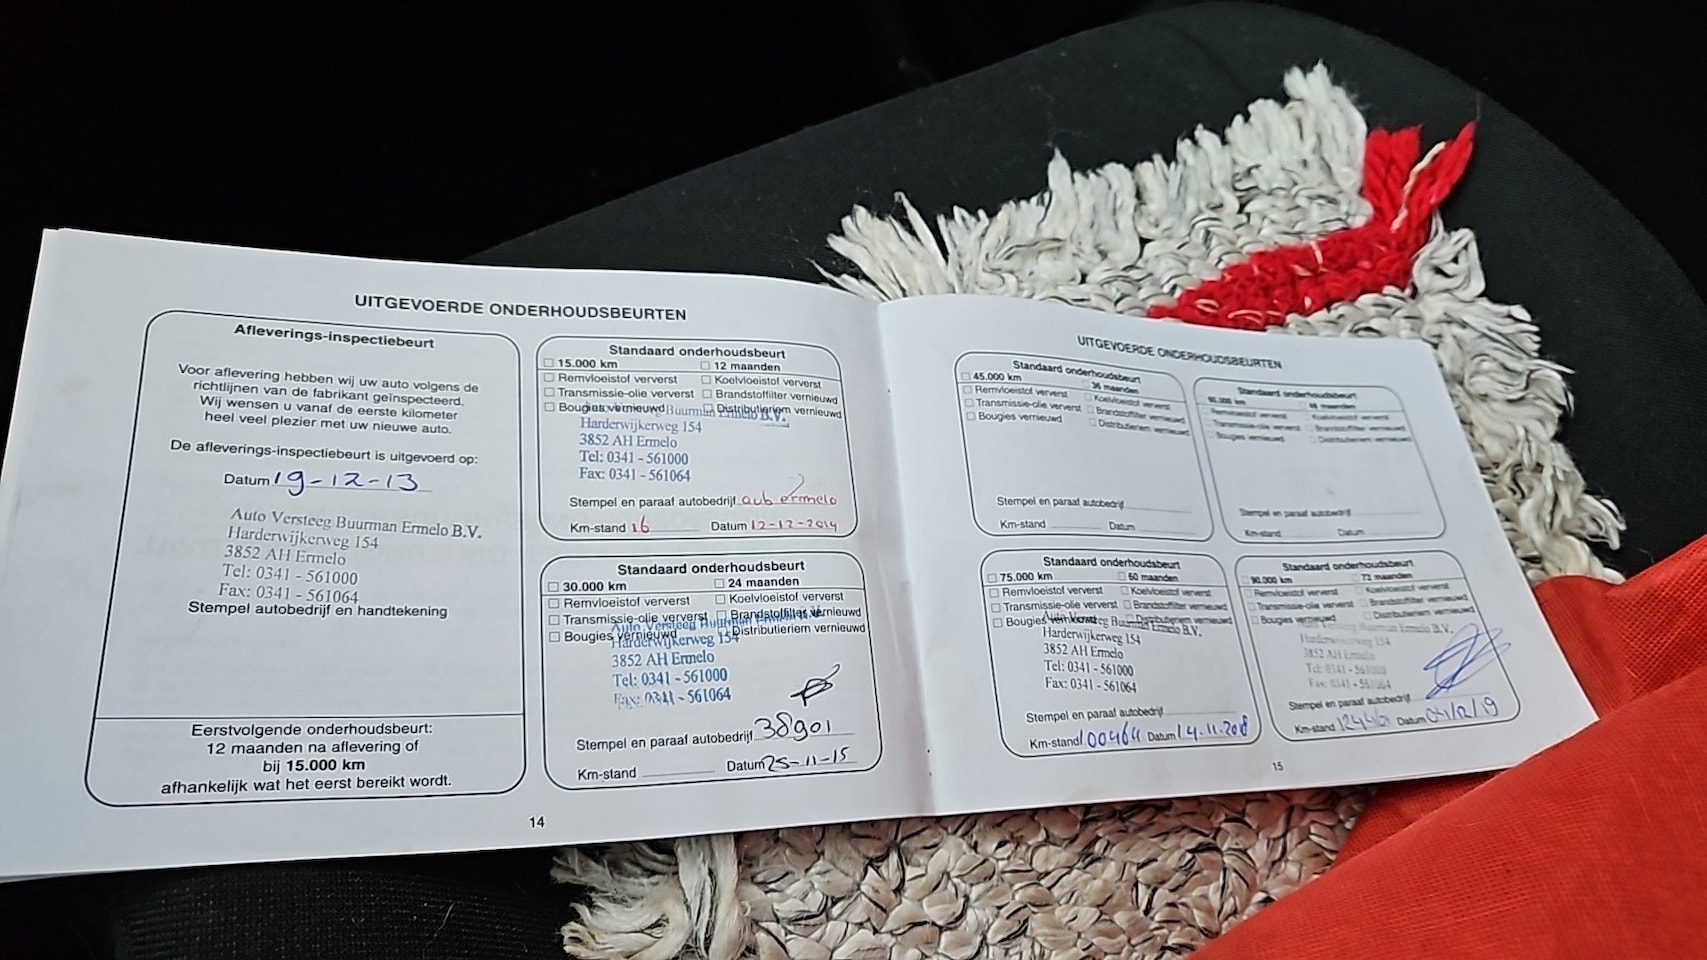 UITGEVOERDE ONDERHOUDSBEURTEN
Afleverings-inspectiebeurt
Voor aflevering hebben wij uw auto volgens de
richtlijnen van de fabrikant geïnspecteerd.
Wij wensen u vanaf de eerste kilometer
heel veel plezier met uw nieuwe auto.
De afleverings-inspectiebeurt is uitgevoerd op:
Datum 19-12-13
Auto Versteeg Buurman Ermelo B.V.
Harderwijkerweg 154
3852 AH Ermelo
Tel: 0341 - 561000
Fax: 0341 - 561064
Stempel autobedrijf en handtekening
Eerstvolgende onderhoudsbeurt:
12 maanden na aflevering of
bij 15.000 km
afhankelijk wat het eerst bereikt wordt.
Standaard onderhoudsbeurt
15.000 km 12 maanden
Remvloeistof ververst Koelvloeistof ververst
Transmissie-olie ververst Brandstoffilter vernieuwd
Bougies vernieuwd Distributieriem vernieuwd
Buurman Ermelo B.V.
Harderwijkerweg 154
3852 AH Ermelo
Tel: 0341 - 561000
Fax: 0341 - 561064
Stempel en paraaf autobedrijf aub ermelo
Km-stand 16 Datum 12-12-2014
Standaard onderhoudsbeurt
30.000 km 24 maanden
Remvloeistof ververst Koelvloeistof ververst
Transmissie-olie ververst Brandstoffilter vernieuwd
Bougies vernieuwd Distributieriem vernieuwd
Auto Versteeg Buurman Ermelo B.V.
Harderwijkerweg 154
3852 AH Ermelo
Tel: 0341 - 561000
Fax: 0341 - 561064
Stempel en paraaf autobedrijf 38901
Km-stand Datum 25-11-15
14
UITGEVOERDE ONDERHOUDSBEURTEN
Standaard onderhoudsbeurt
45.000 km 36 maanden
Remvloeistof ververst Koelvloeistof ververst
Transmissie-olie ververst Brandstoffilter vernieuwd
Bougies vernieuwd Distributieriem vernieuwd
Stempel en paraaf autobedrijf
Km-stand Datum
Standaard onderhoudsbeurt
60.000 km 48 maanden
Remvloeistof ververst Koelvloeistof ververst
Transmissie-olie ververst Brandstoffilter vernieuwd
Bougies vernieuwd Distributieriem vernieuwd
Stempel en paraaf autobedrijf
Km-stand Datum
Standaard onderhoudsbeurt
75.000 km 60 maanden
Remvloeistof ververst Koelvloeistof ververst
Transmissie-olie ververst Brandstoffilter vernieuwd
Bougies vernieuwd Distributieriem vernieuwd
Auto Versteeg Buurman Ermelo B.V.
Harderwijkerweg 154
3852 AH Ermelo
Tel: 0341 - 561000
Fax: 0341 - 561064
Stempel en paraaf autobedrijf
Km-stand 100464 Datum 14-11-2018
Standaard onderhoudsbeurt
90.000 km 72 maanden
Remvloeistof ververst Koelvloeistof ververst
Transmissie-olie ververst Brandstoffilter vernieuwd
Bougies vernieuwd Distributieriem vernieuwd
Buurman Ermelo B.V.
Harderwijkerweg 154
3852 AH Ermelo
Tel: 0341 - 561000
Fax: 0341 - 561064
Stempel en paraaf autobedrijf
Km-stand Datum 04/12/19
15